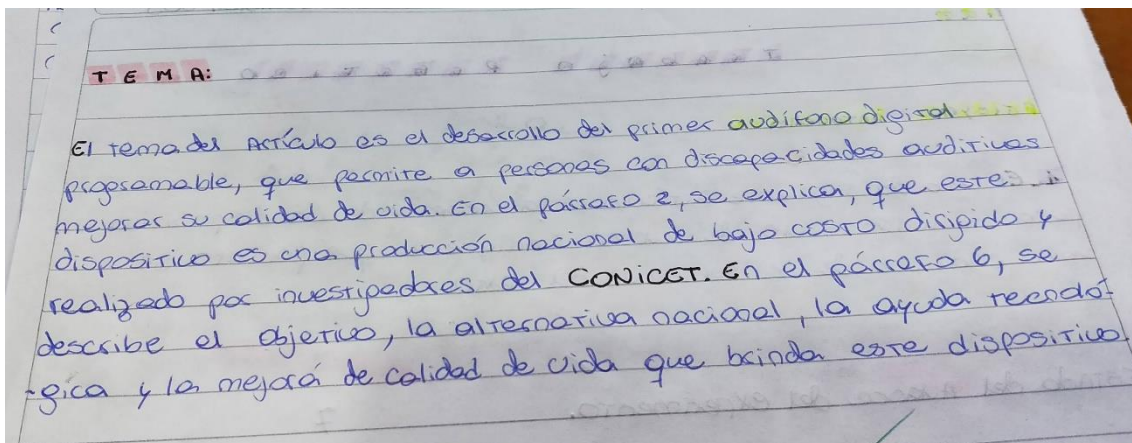 TEMA:
El tema del Artículo es el desarrollo del primer audífono digital
programable, que permite a personas con discapacidades auditivas
mejorar su calidad de vida. En el párrafo 2, se explica, que este
dispositivo es una producción nacional de bajo costo dirigido y
realizado por investigadores del CONICET. En el párrafo 6, se
describe el objetivo, la alternativa nacional, la ayuda tecnoló-
-gica y la mejorá de calidad de vida que brinda este dispositivo.